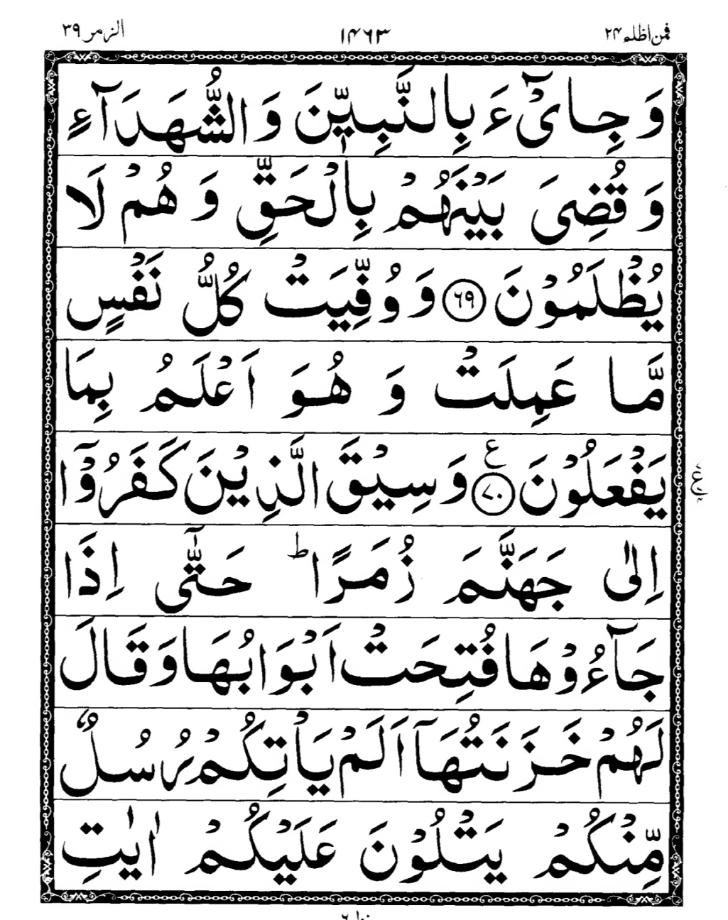 فمن اظلم ۲۴ ۱۴۶۳ الزمر ۳۹
وَ جِایْٓءَ بِالنَّبِیّٖنَ وَ الشُّهَدَآءِ
وَ قُضِیَ بَیْنَهُمْ بِالْحَقِّ وَ هُمْ لَا
یُظْلَمُوْنَ ﴿۶۹﴾ وَ وُفِّیَتْ كُلُّ نَفْسٍ
مَّا عَمِلَتْ وَ هُوَ اَعْلَمُ بِمَا
یَفْعَلُوْنَ ﴿۷۰﴾ ع وَ سِیْقَ الَّذِیْنَ كَفَرُوْۤا
اِلٰی جَهَنَّمَ زُمَرًا ؕ حَتّٰۤی اِذَا
جَآءُوْهَا فُتِحَتْ اَبْوَابُهَا وَ قَالَ
لَهُمْ خَزَنَتُهَاۤ اَلَمْ یَاْتِكُمْ رُسُلٌ
مِّنْكُمْ یَتْلُوْنَ عَلَیْكُمْ اٰیٰتِ